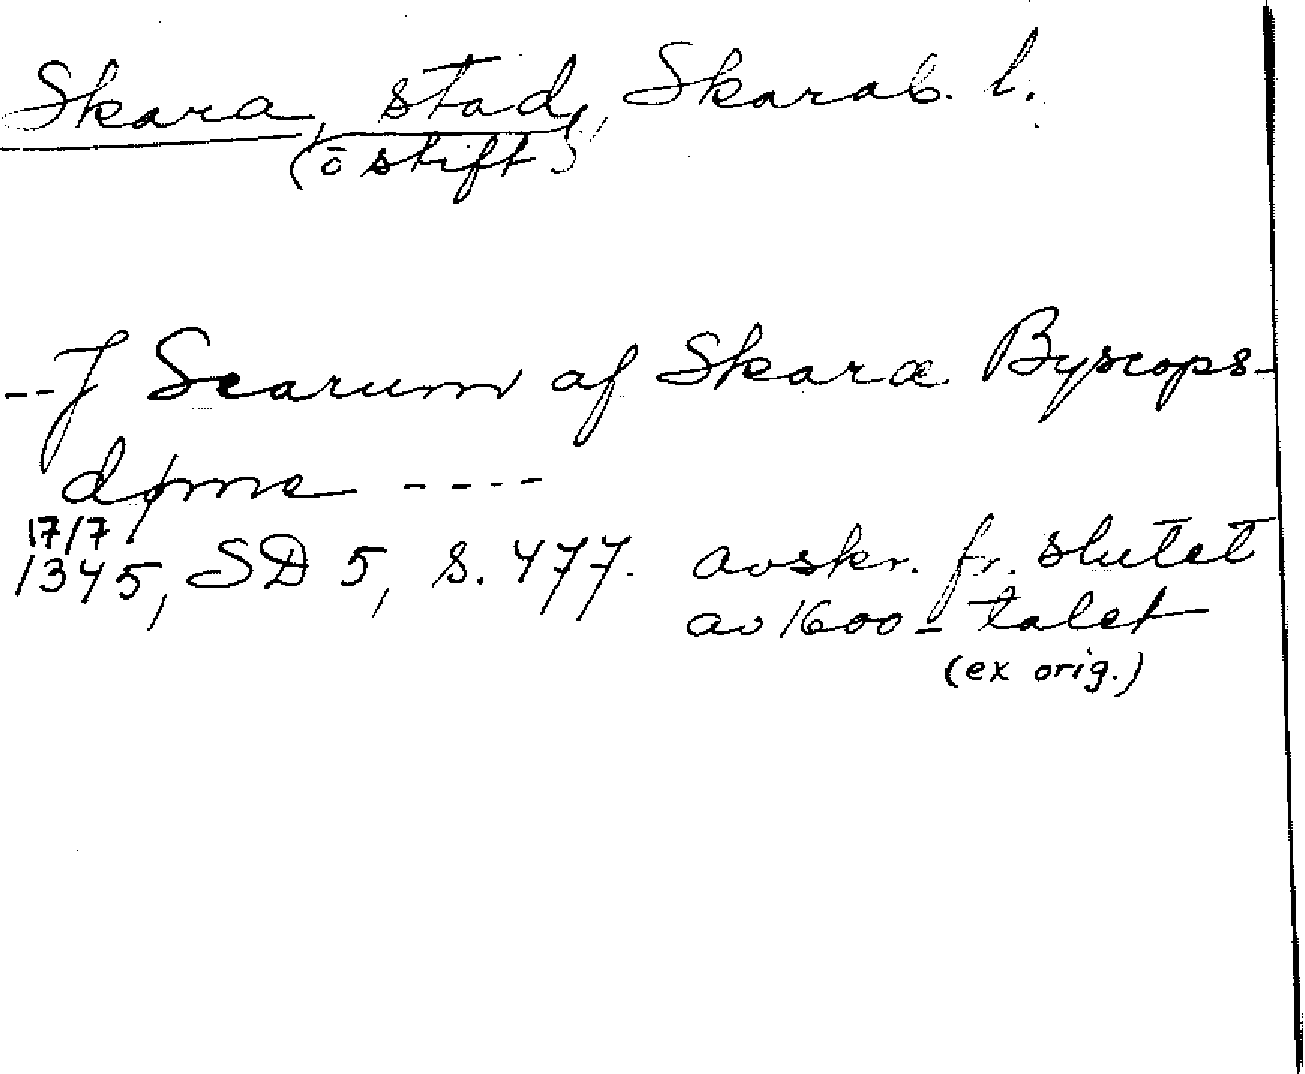 Skara, stad, Skarab. l.
(o stift)
--J Scarum af Skaræ Byscops-
døme ----
17/7
1345, SD 5, s. 477. avskr. fr. slutet
av 1600-talet
(ex orig.)